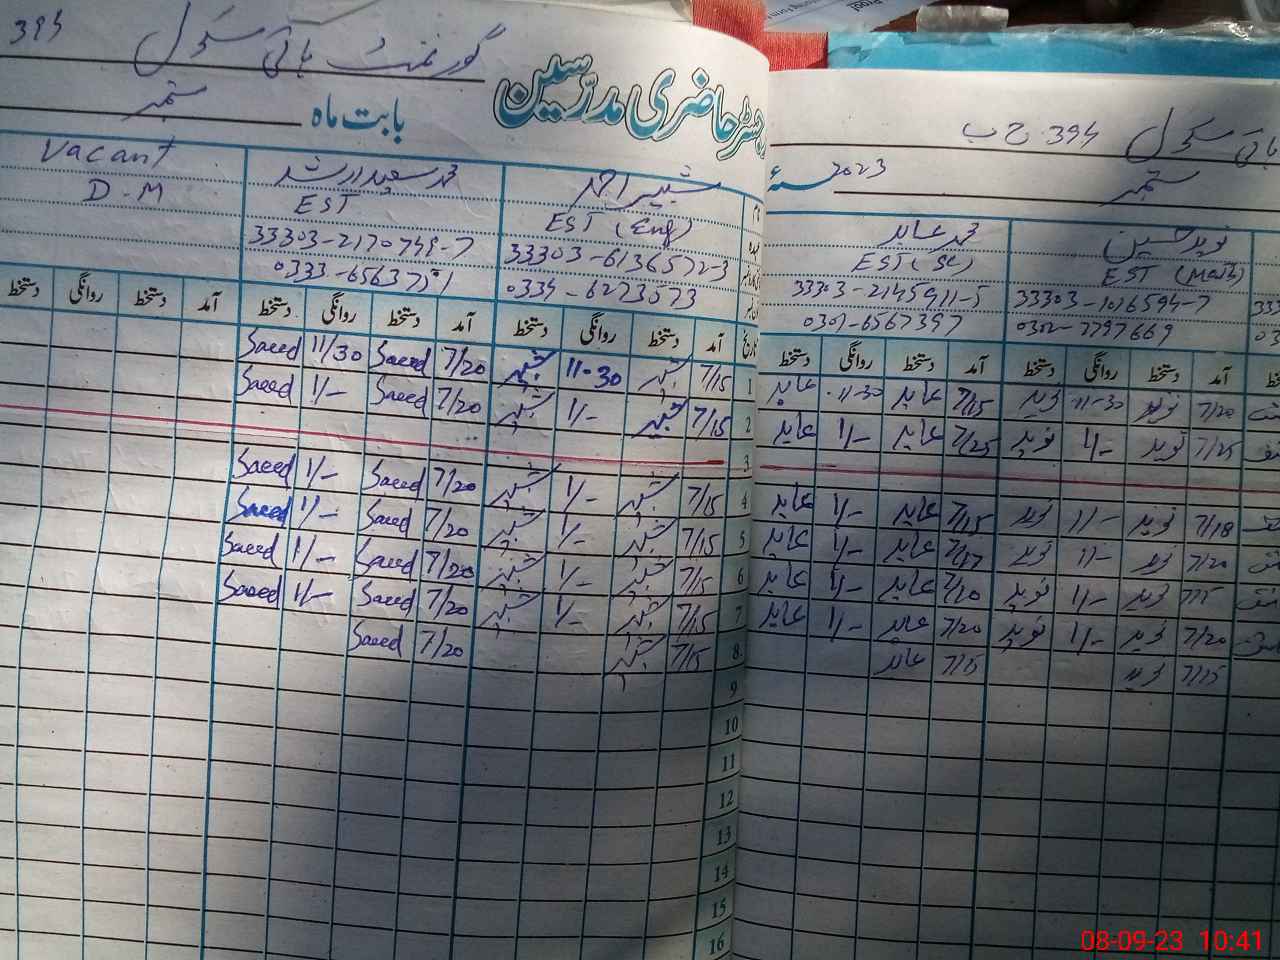 گورنمنٹ ہائی سکول 394
رجسٹر حاضری مدرسین
بابت ماہ ستمبر
شبیر احمد
محمد سعید ارشد
Vacant
EST (Eng)
EST
D-M
33303-6136572-3
33303-2170749-7
0334-6273573
0333-6563751
تاریخ آمد دستخط روانگی دستخط آمد دستخط روانگی دستخط آمد دستخط روانگی دستخط
1 7/15 شبیر 11-30 شبیر 7/20 Saeed 11/30 Saeed
2 7/15 شبیر 1/- شبیر 7/20 Saeed 1/- Saeed
3
4 7/15 شبیر 1/- شبیر 7/20 Saeed 1/- Saeed
5 7/15 شبیر 1/- شبیر 7/20 Saeed 1/- Saeed
6 7/15 شبیر 1/- شبیر 7/20 Saeed 1/- Saeed
7 7/15 شبیر 1/- شبیر 7/20 Saeed 1/- Saeed
8 7/15 شبیر 7/20 Saeed
9
10
11
12
13
14
15
16
ہائی سکول 394 ج ب
ستمبر
سنہ 2023
نوید حسین
محمد عابد
EST (Math)
EST (Sc)
33303-1016594-7
33303-2145911-5
0302-7797669
0301-6567397
آمد دستخط روانگی دستخط آمد دستخط روانگی دستخط
7/20 نوید 11-30 نوید 7/15 عابد 11-30 عابد
7/25 نوید 1/- نوید 7/25 عابد 1/- عابد
7/18 نوید 1/- نوید 7/15 عابد 1/- عابد
7/20 نوید 1/- نوید 7/17 عابد 1/- عابد
7/15 نوید 1/- نوید 7/10 عابد 1/- عابد
7/20 نوید 1/- نوید 7/20 عابد 1/- عابد
7/15 نوید 7/15 عابد
08-09-23 10:41